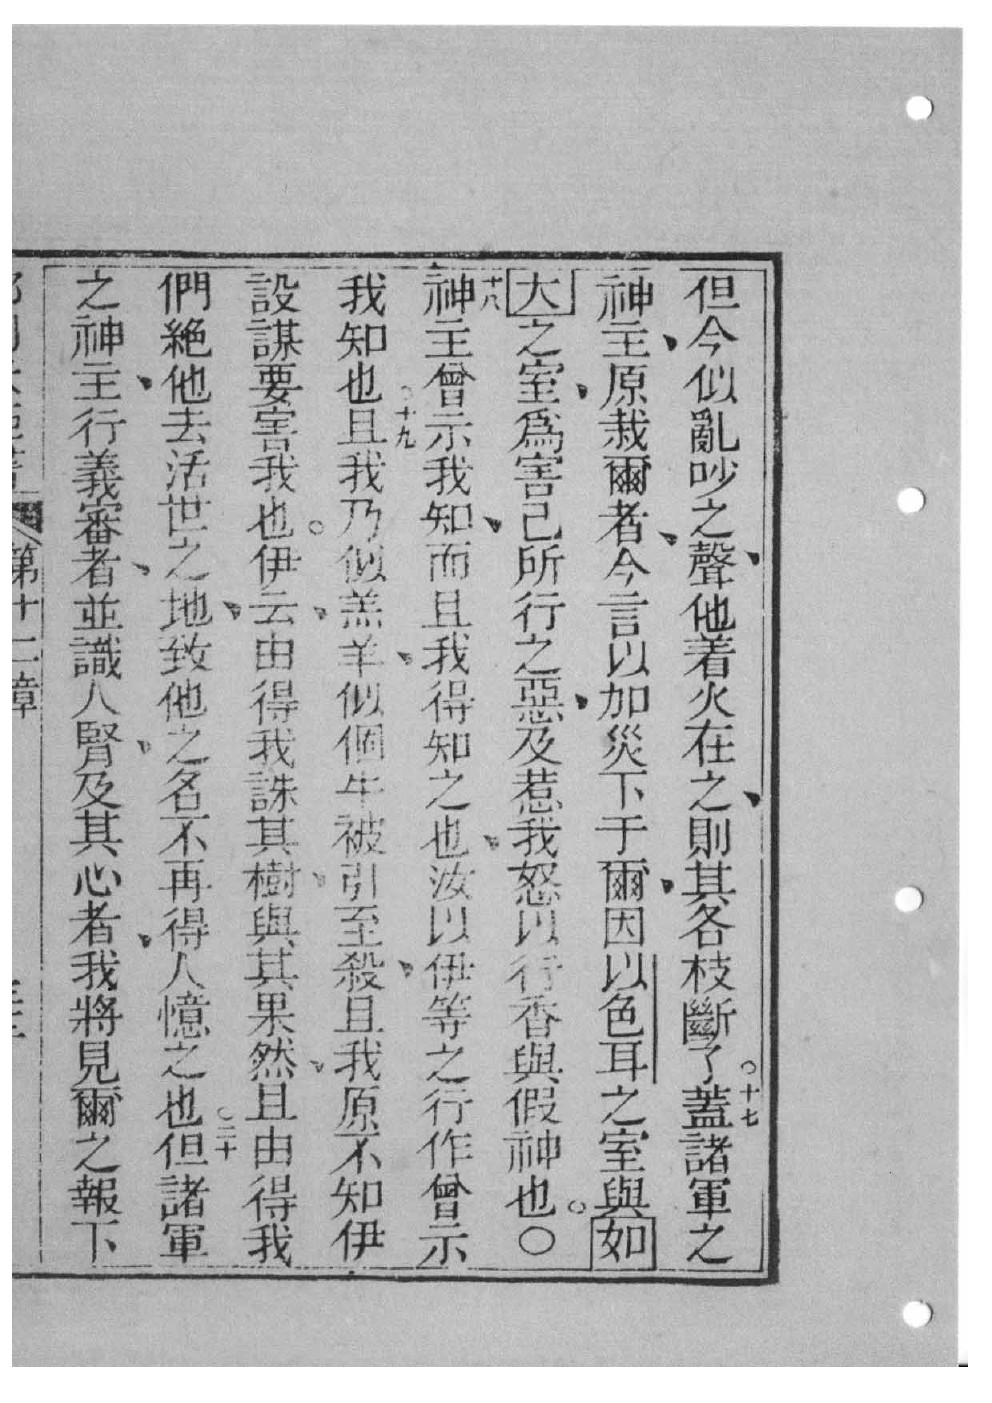 但今似亂吵之聲他着火在之則其各枝斷了。十七蓋諸軍之
神主原栽爾者今言以加災下于爾因以色耳之室與如
大之室爲害己所行之惡及惹我怒以行香與假神也。〇
十八神主曾示我知而且我得知之也汝以伊等之行作曾示
我知也。十九且我乃似羔羊似個牛被引至殺且我原不知伊
設謀要害我也。伊云由得我誅其樹與其果然且由得我
們絕他去活世之地致他之名不再得人憶之也。二十但諸軍
之神主行義審者並識人腎及其心者我將見爾之報下
第十一章